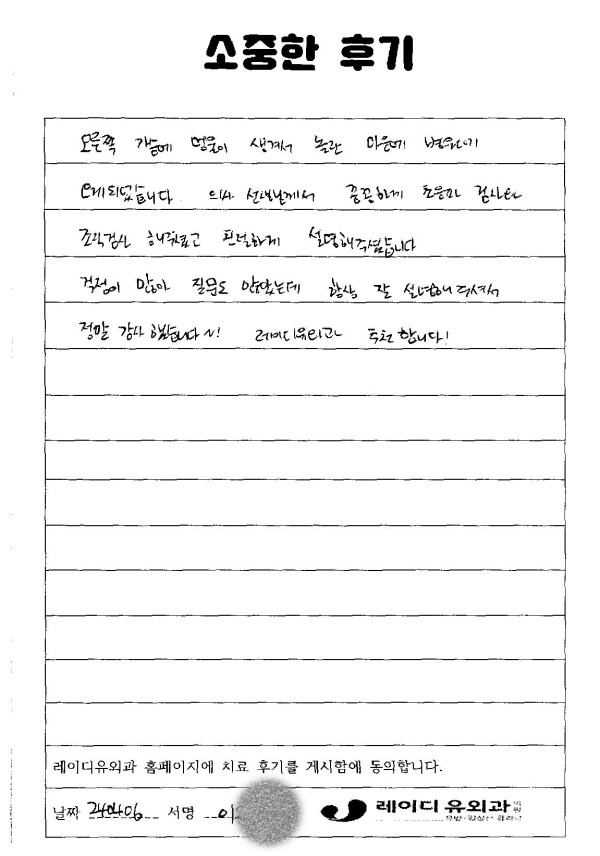 소중한 후기
오른쪽 가슴에 멍울이 생겨서 놀란 마음에 병원에
오게되었습니다 의사 선생님께서 꼼꼼하게 초음파 검사와
조직검사 해주시고 친절하게 설명해주셨습니다
걱정이 많아 질문도 많았는데 항상 잘 설명해주셔서
정말 감사했습니다~! 레이디유외과 추천합니다!
레이디유외과 홈페이지에 치료 후기를 게시함에 동의합니다.
날짜 240406 서명 이 레이디유외과의원
유방·갑상선 클리닉